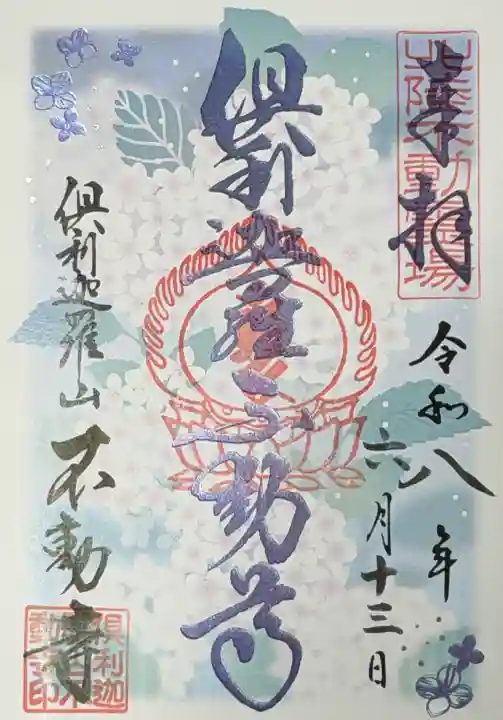 奉拝
北陸不動霊場
令和八年
六月十三日
倶利迦羅不動尊
倶利迦羅山 不動寺